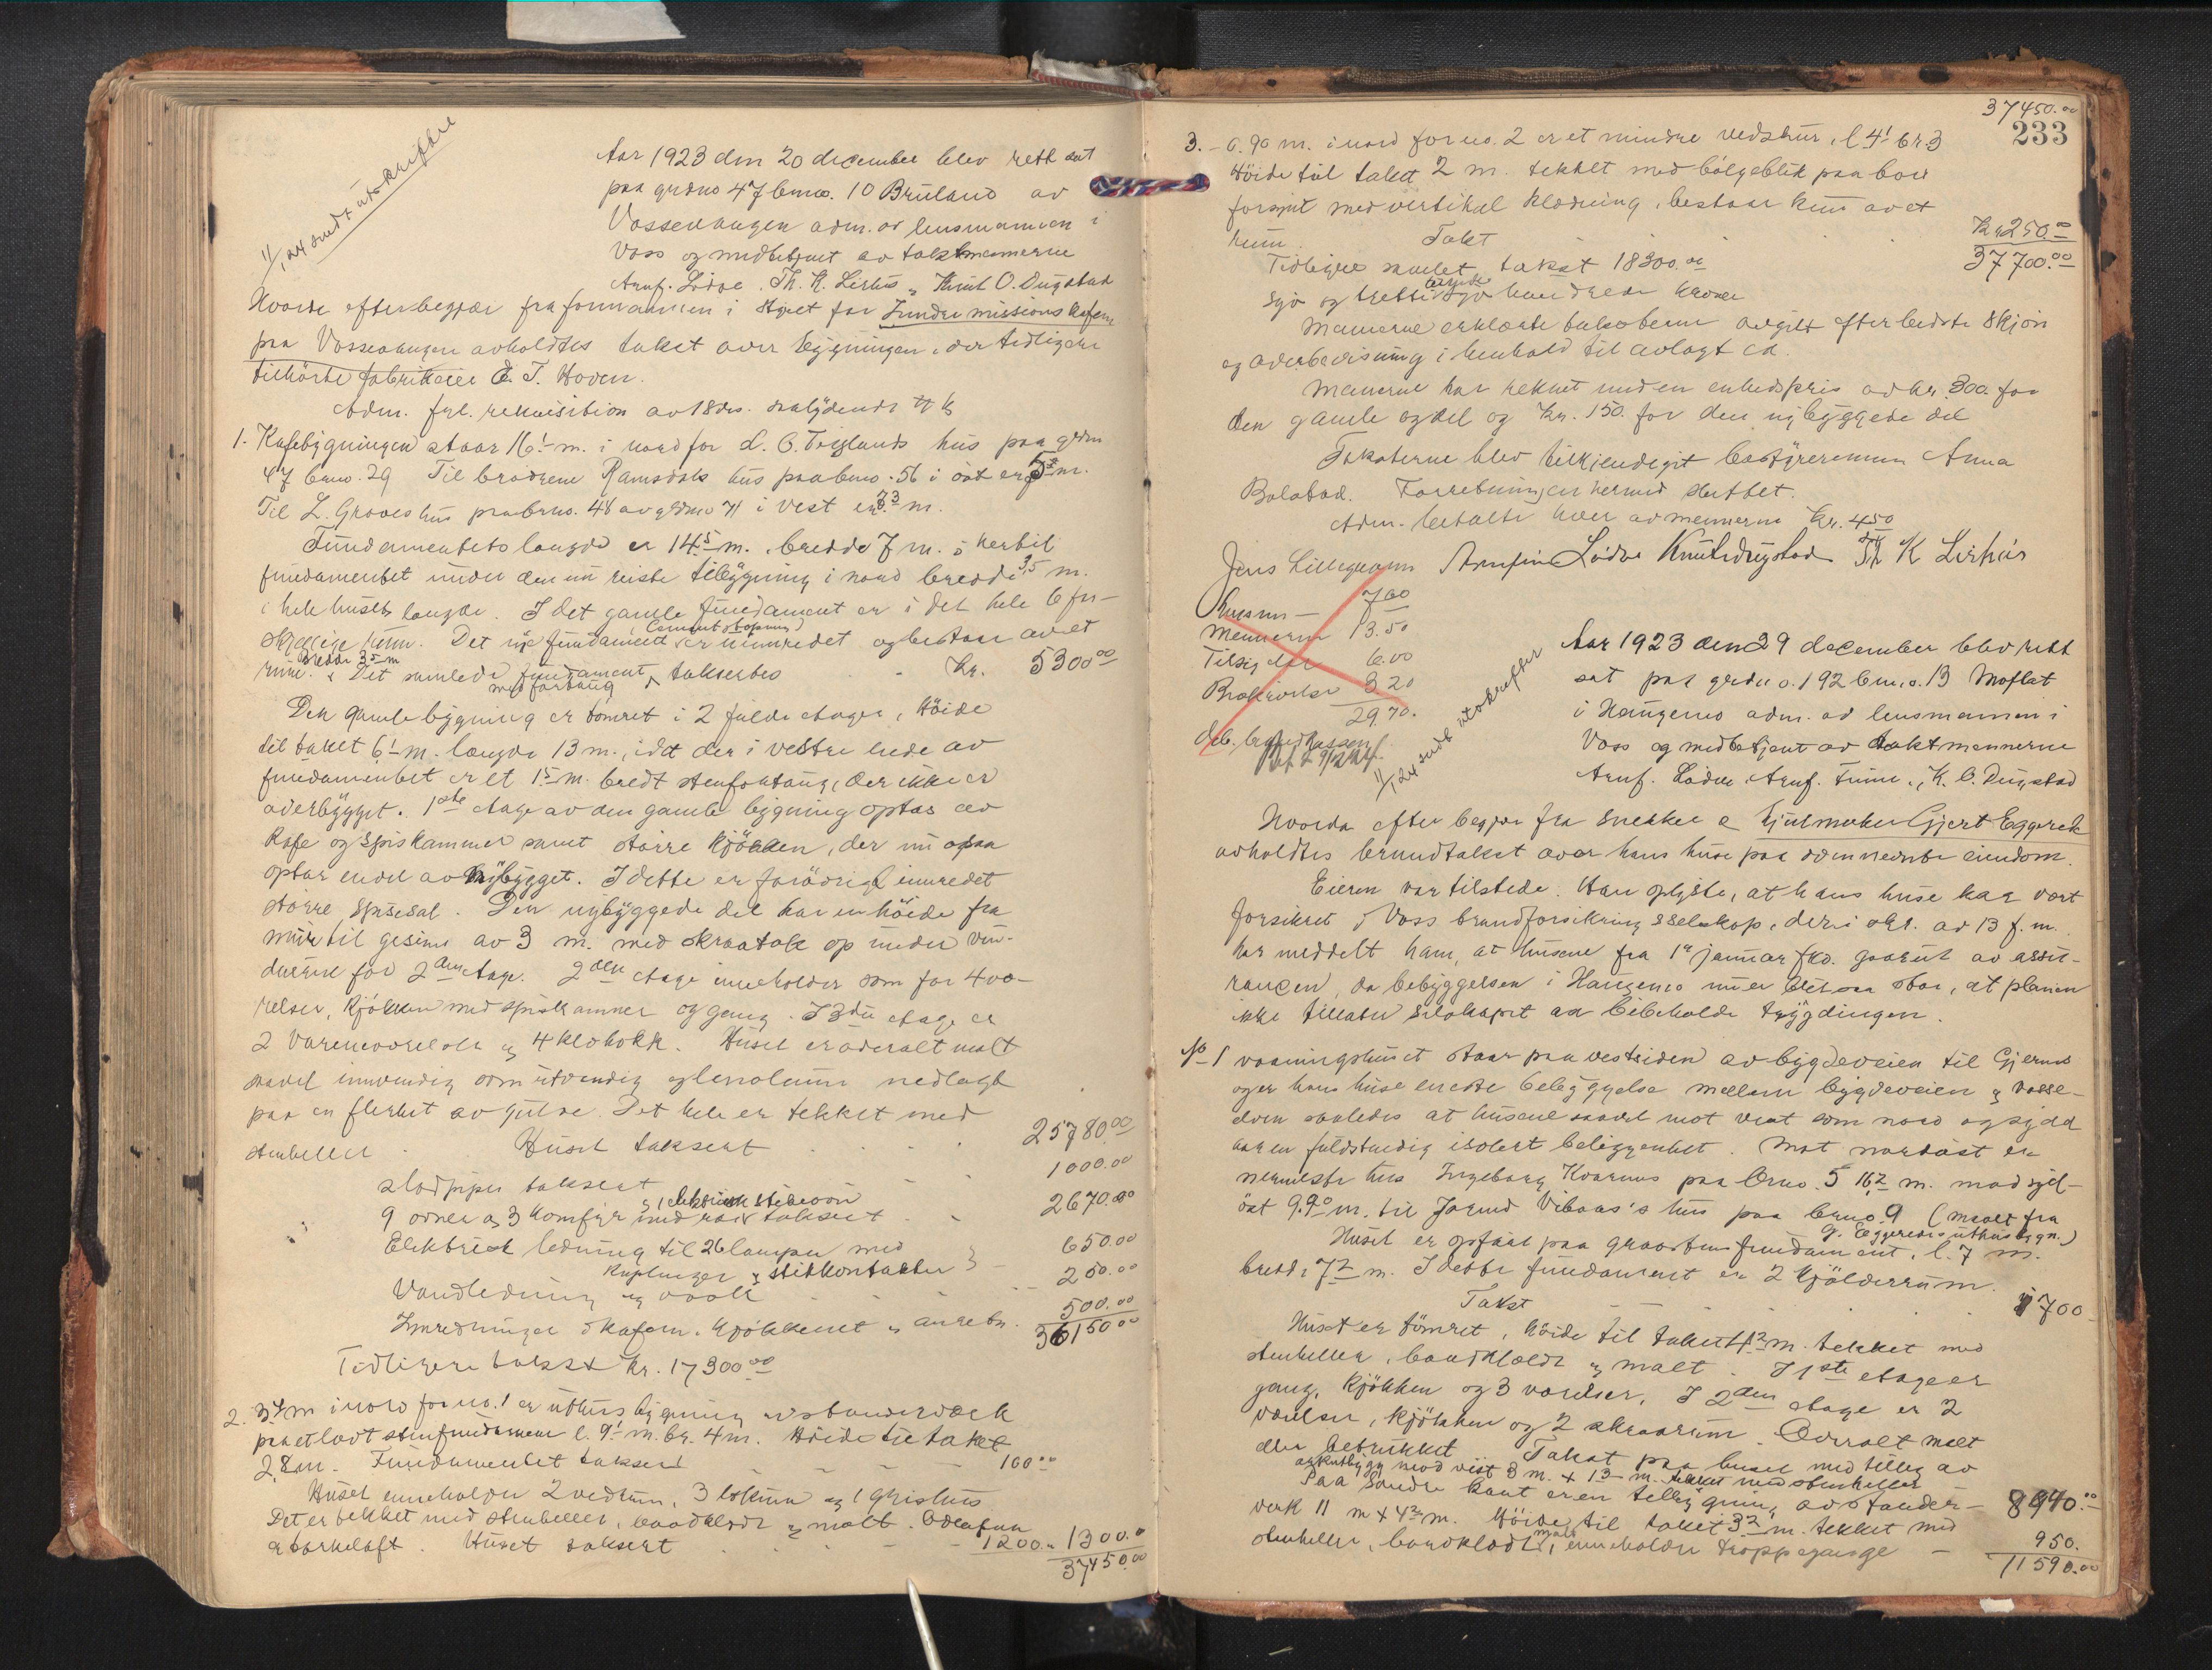 11/1 24 sendt utskrifter
Aar 1923 den 20 december blev rett sat
paa grdno 47 bno. 10 Bruland av
Vossevangen adm. av lensmannen i
Voss og medbetjent av takstmennerne
Arnf. Lødve, Th. K. Lirhus, Knut O. Dugstad
Hvorda efter begjær fra formannen i styret for Indremissions kafeen
paa Vossevangen avholdtes takst over bygningen, der tidligere
tilhørte fabrikeier E. T. Hoven.
Adm. frl. rekvisition av 18 ds.
1. Kafebygningen staar 16 1 m. i nord for L. O. Teiglands hus paa grdno
47 bno. 29 Til brødrene Ramsdals hus paa bno. 56 i øst er 5 m.
Til L. Graves hus paa brno. 48 av grdno 71 i vest er m.
Fundamentets længde er 14 5 m. bredde 7 m. hertil
fundamentet under den nu reiste tilbygning i nord bredde 3,5 m.
i hele husets længde. I det gamle fundament er i det hele 6 for-
skjellige rum. Det nye fundament (Cementstøpning) er uinnredet og bestaar av et
rum. Bredde 3 5 m Det samlede fundament med fortaug takserbes - kr. 5300 00
Den gamle bygning er tømret i 2 fulde etager, høide
til taket 6 1 m. længde 13 m., idet der i vestre ende av
fundamentet er et 1 5 m. bredt stenfortaug, der ikke er
overbygget. 1ste etage av den gamle bygning optas av
kafe og spiskammer samt større kjøkken, der nu ogsaa
optar endel av nybygget. I dette er forøvrig innredet
større spisesal. Den nybyggede del har en høide fra
mur til gesims av 3 m. med skraatak op under vin-
duerne for 2den etage. 2den etage inneholder som før 4 væ-
relser, kjøkken med spiskammer og gang. I 3die etage er
2 værelser og 4 klokott. Huset er overalt malt
saavel innvendig som utvendig og lenoleum nedlagt
paa en flerhet av gulve. Det hele er tekket med
stenheller. Huset taksert . . . 25780 00
2 lodpiper taksert - - 1000.00
9 ovner og 3 komfyr og 1 elektrisk stikeovn taksert - - 2670.00
Elektrisk ledning til 26 lamper med
kuplinger & stikkontakter } - 650.00
Vandledning og vask . . . 250.00
Innredninger i kafeen, kjøkkenet & anretn. 500.00
36150 00
Tidligere takst kr. 17300 00
2. 3 m i nord for no. 1 er uthusbygning av stenderværk
paa et lavt stenfundament l. 9 1 m. br. 4 m. Høide til taket
2,8 m. Fundamentet taksert - - - 100 00
Huset inneholder 2 vedrum, 3 lokum og 1 grishus
Det er tekket med stenheller, bordklædt & malt. Ovenfor
er tørkeloft. Huset taksert . . - 1200.- 1300.0
37450.00
37450.00
233
3. - 0.90 m. i nord for no. 2 er et mindre vedskur, l 4 1 br. 3
Høide til taket 2 m. tekket med bølgeblik paa bord
forsynt med vertikal klædning, bestaar kun av et
rum. Takst Kr 250.00
37700.00
Tidligere samlet takst 18300.00
syv og tretti tusinde syv hundrede kroner
Mannerne erklærte taksterne avgitt efter bedste skjøn
og overbevisning i henhold til avlagt ed.
Mannerne har reknet med en enhedspris av kr. 300 for
den gamle og del og kr. 150. for den nybyggede del
Taksterne blev tilkjendegit bestyrerinnen Anna
Bolstad. Forretningen hermed sluttet.
Adm. betalte hver av mennerne kr. 4.50
Jens Lillegraven Arnfin Lødve Knut Dugstad Th K Lirhus
Lensm - 7.00
Mennerne 13.50
Tilsigelse 6.00
Beskrivelse 3.20
29.70.
11/1 24 sendt utskrifter
Aar 1923 den 29 december blev rett
sat paa grdno. 192 bno. 13 Moflat
i Haugemo adm. av lensmannen i
Voss og medbetjent av takstmennerne
Arnf. Lødve, Arnf. Finne, K. O. Dugstad
Hvorda efter begjær fra snekker & hjulmaker Gjert Eggereide
avholdtes brandtakst over hans huse paa ovennevnte eiendom.
Eieren var tilstede. Han oplyste, at hans huse har vært
forsikret i Voss brandforsikringsselskap, der i skr. av 13 f. m.
har meddelt ham, at husene fra 1e januar fkd. gaar ut av assu-
rancen, da bebyggelsen i Haugemo nu er blet saa stor, at planen
ikke tillater selskapet aa bibeholde trygdingen.
No 1 vaaningshuset staar paa vestsiden av bygdeveien til Gjernes
og er hans huse eneste bebyggelse mellem bygdeveien & Vosse-
elven saaledes at husene saavel mot vest som nord og syd
har en fuldstændig isolert beliggenhet. Mot nordøst er
nermeste hus Ingeborg Kvarmes paa bno. 5 16 2 m. mot syd-
øst 9.90 m. til Jørund Vibaas's hus paa bno. 9 (maalt fra
G. Eggereides uthusbygn.)
Huset er opført paa graastensfundament, l. 7 m.
bredde 7 2 m. I dette fundament er 2 kjølderrum.
Takst 1700
Huset er tømret, høide til taket m. tekket med
stenheller, bordklædt & malt. I 1ste etage er
gang, kjøkken og 3 værelser, I 2den etage er 2
værelser, kjøkken og 2 skraarum. Overalt malt
eller betrukket. Takst paa huset med tillæg av
utbygg mod vest 3 m. x 1 3 m. tekket med stenheller 8940.00
Paa søndre kant er en tilbygning av stender-
verk 11 m x 4 2 m. Høide til taket 3 2 m. tekket med
stenheller, bordklædt, malt, inneholder troppegange - 950.
11590.00